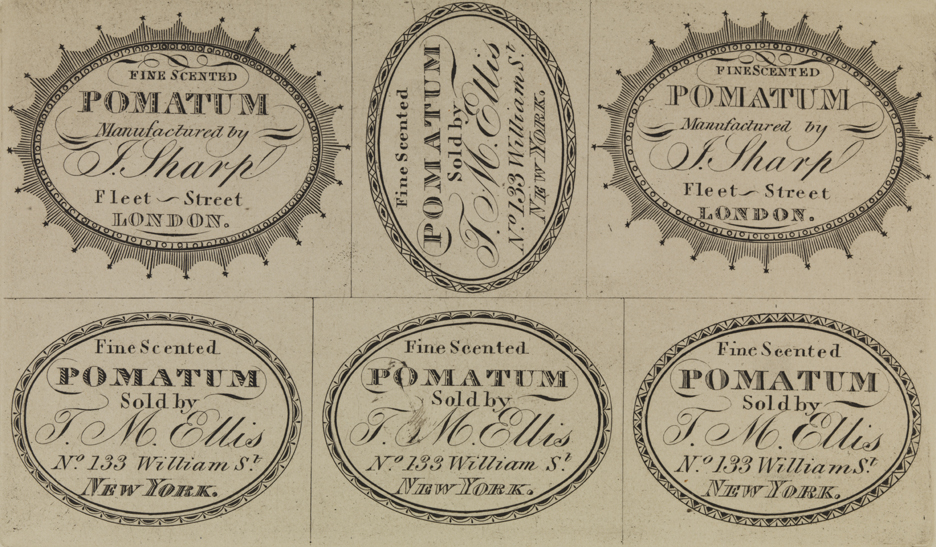 FINE SCENTED
POMATUM
Manufactured by
J. Sharp
Fleet ~ Street
LONDON.
Fine Scented
POMATUM
Sold by
T. M. Ellis
No. 133 William St.
NEW YORK.
FINE SCENTED
POMATUM
Manufactured by
J. Sharp
Fleet ~ Street
LONDON.
Fine Scented
POMATUM
Sold by
T. M. Ellis
No. 133 William St.
NEW YORK.
Fine Scented
POMATUM
Sold by
T. M. Ellis
No. 133 William St.
NEW YORK.
Fine Scented
POMATUM
Sold by
T. M. Ellis
No. 133 William St.
NEW YORK.